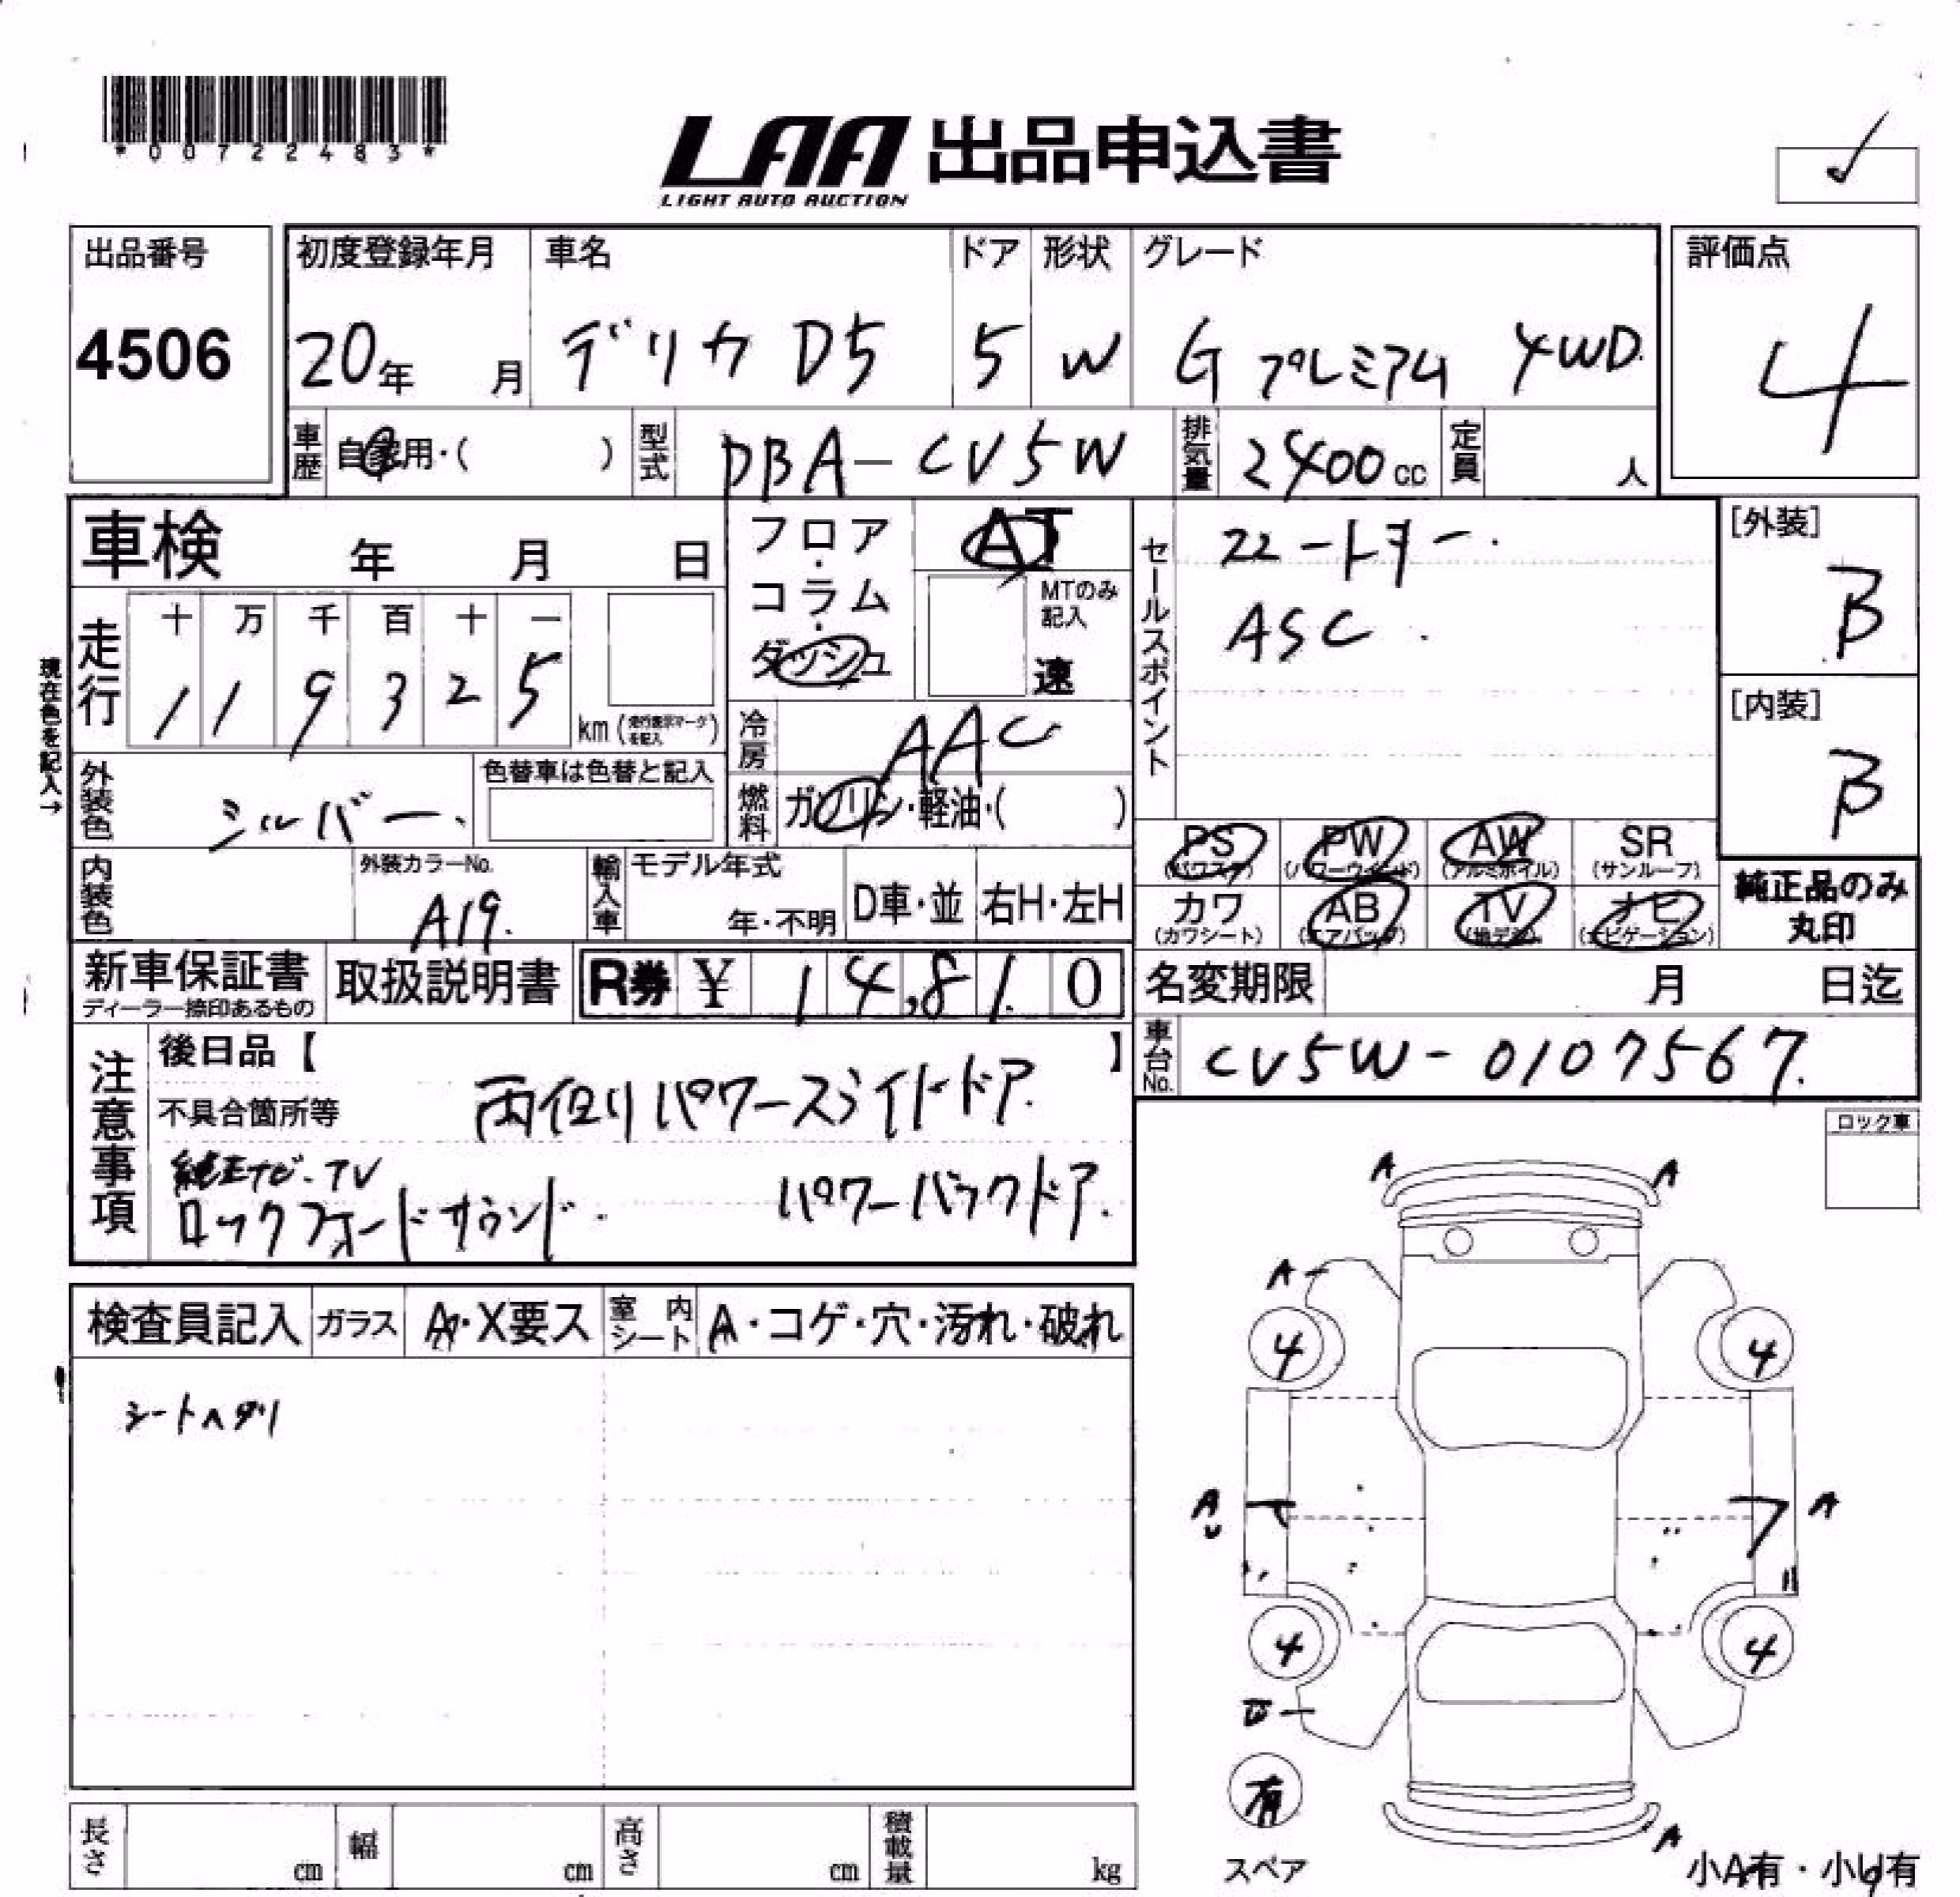 *00722483*
LAA 出品申込書
LIGHT AUTO AUCTION
出品番号
4506
初度登録年月 車名 ドア 形状 グレード 評価点
20年 月 デリカ D5 5 W Gプレミアム 4WD 4
車歴 自家用・( ) 型式 DBA-CV5W 排気量 2400cc 定員 人
車検 年 月 日
フロア・コラム・ダッシュ
AT
MTのみ記入
速
走行
十 万 千 百 十 一
1 1 9 3 2 5
km (走行表示マークを記入)
現在色を記入→
冷房 AAC
外装色 シルバー
色替車は色替と記入
燃料 ガソリン・軽油・( )
内装色
外装カラーNo.
A19.
輸入車 モデル年式
年・不明 D車・並 右H・左H
新車保証書
ディーラー捺印あるもの
取扱説明書
R券 ¥ 14,810
セールスポイント
ASC.
[外装]
B
[内装]
B
PS (パワステ) PW (パワーウインド) AW (アルミホイル) SR (サンルーフ)
カワ (カワシート) AB (エアバッグ) TV (地デジ) ナビ (ナビゲーション)
純正品のみ
丸印
名変期限 月 日迄
車台No. CV5W-0107567.
注意事項
後日品【 】
不具合箇所等
両側パワースライドドア.
純正ナビ.TV
ロックフォードサウンド.
パワーバックドア.
ロック車
検査員記入 ガラス A・X要ス 室内シート A・コゲ・穴・汚れ・破れ
シートヘタリ
A A
A
4 4
A A
U
4 4
有
スペア
A
小A有・小U有
長さ cm 幅 cm 高さ cm 積載量 kg